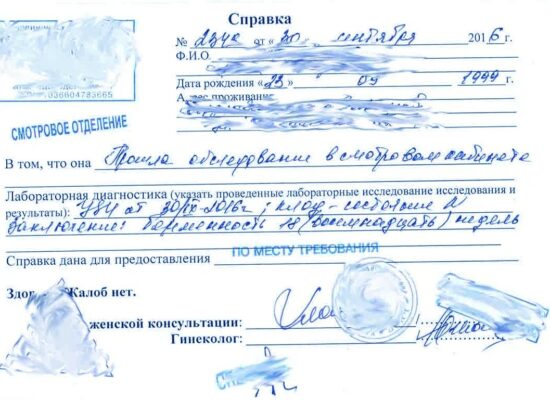 Справка
№ 234 от "30" сентября 2016 г.
Ф.И.О.
Дата рождения "23" 09 1999 г.
036604783665
СМОТРОВОЕ ОТДЕЛЕНИЕ
В том, что она Прошла обследование в смотровом кабинете
Лабораторная диагностика (указать проведенные лабораторные исследование исследования и
результаты): УЗИ от 30/IX-2016г; - состояние N
Заключение: беременность 18 (восемнадцать) недель
Справка дана для предоставления ПО МЕСТУ ТРЕБОВАНИЯ
Жалоб нет.
женской консультации:
Гинеколог: